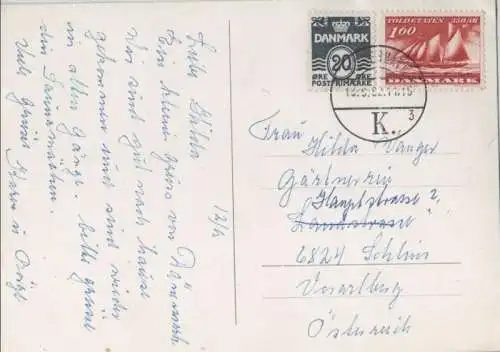 12/6
Liebe Hilda
Ein kleiner Gruss von Dänemark
Wir sind gut nach hause
gekommen und sind wieder
in allen Gänge. Bitte grüsse
die Tanzmädchen.
Viele Grüsse
DANMARK
20
ØRE ØRE
POSTFRIMÆRKE
TOLDETATEN 350 ÅR
160
DANMARK
K.
3
Frau
Hilda Wanger
Gärtnerin
Hauptstrasse 2,
Landstrasse
6824 Schlins
Vorarlberg
Österreich